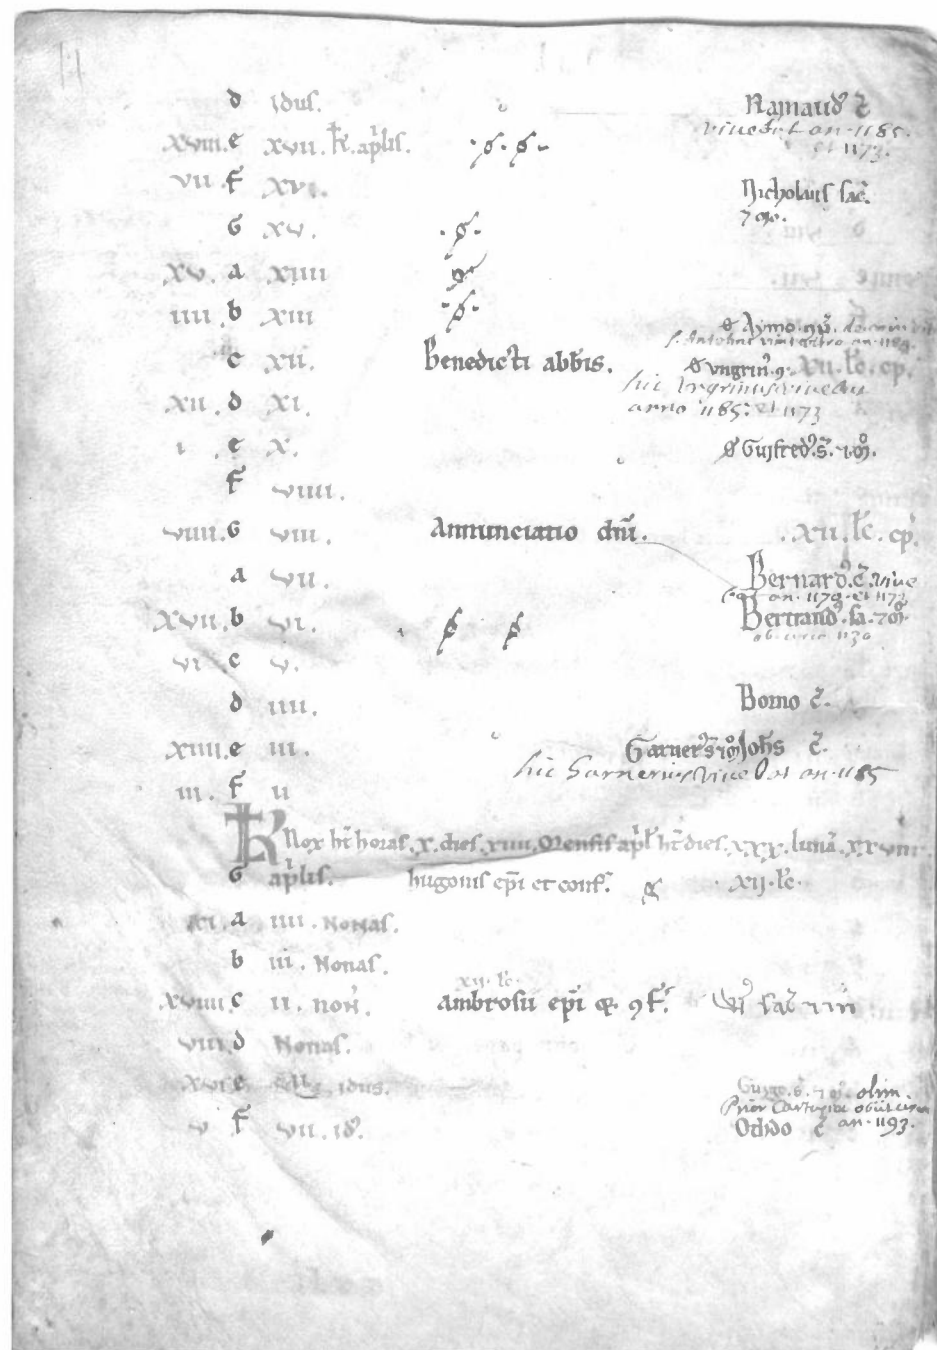 d idus. Rainaud9 c̄
vivebat an. 1185.
et 1173.
xviii. e xvii. kl. aplis.
vii. f xvi. Nicholaus sac.
7 mo.
G xv.
xv. a xiiii
iiii. b xiii
& Aymo
an. 1189.
c xii. Benedicti abbis. & Ungrin9. 9. XII. lc. cp.
hic Ungrinus vivebat
anno 1185: et 1173
xii. d xi.
i. e x. & Guifred9. s. 7. m.
f viiii.
viiii. G viii. Annunciatio dni. .XII. lc. cp.
a vii. Bernard9. c̄. vive
bat an. 1179. et 1173
xvii. b vi. Bertrand9. sa. 7 m.
ob. circa 1130
vi c v.
d iiii. Bomo c̄.
xiiii. e iii. Garner9 s 7 m Johs c̄.
hic Garnerius vivebat an. 1185
iii. f ii
KL Nox ht horas. x. dies. xiiii. Mensis apl ht dies. xxx. luna. xxviiii.
G aplis. hugonis epi et conf. XII. lc.
xi. a iiii. Nonas.
b iii. Nonas.
xii. lc.
xviiii. c ii. non. Ambrosii epi & 9f.
viii. d Nonas.
xvi e idus. Guigo. s. 7 m. olim
Prior Cartusiae obiit
an. 1193.
v f vii. id. Odno c̄